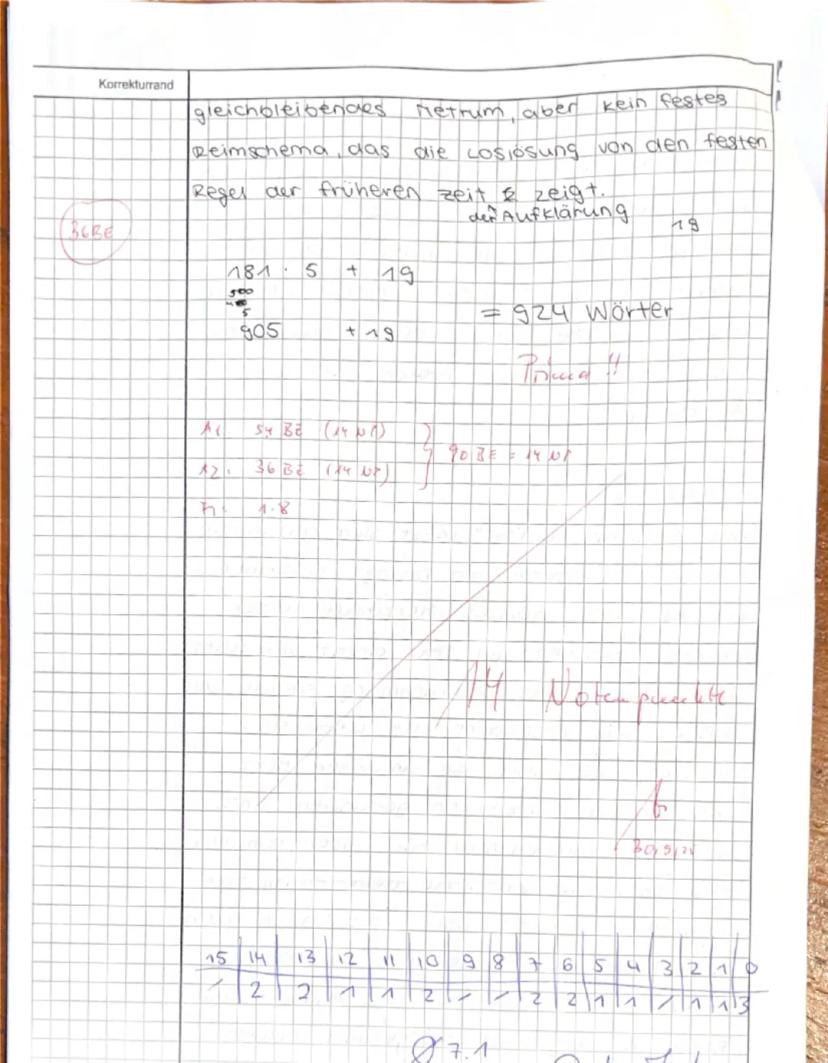 Korrekturrand
gleichbleibendes Metrum, aber kein festes
Reimschema, das die Loslösung von den festen
Regel der früheren Zeit zeigt.
der Aufklärung
19
36BE
181 · 5 + 19
500
5
= 924 Wörter
905 + 19
Prima !!
A1: 54 BE (14 NP)
90 BE = 14 NP
A2: 36 BE (14 NP)
1.8
14 Notenpunkte
15 14 13 12 11 10 9 8 7 6 5 4 3 2 1 0
/ 2 2 1 1 2 / / 2 2 1 1 / 1 1 3
Ø 7.1